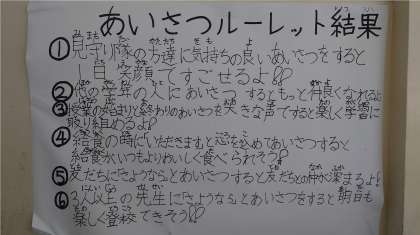 あいさつルーレット結果
①見守り隊の方達に気持ちの良いあいさつをすると
1日笑顔ですごせるよ!!
②他の学年の人にあいさつするともっと仲良くなれるよ
③授業の始まりと終わりのあいさつを大きな声ですると楽しく学習に
取り組めるよ!!
④給食の時にいただきますと心を込めてあいさつすると、
給食がいつもよりおいしく食べられそう!!
⑤友だちに「さようなら」とあいさつすると友だちとの仲が深まるよ!
⑥3人以上の先生に「さようなら」とあいさつをすると明日も
楽しく登校できそう!!